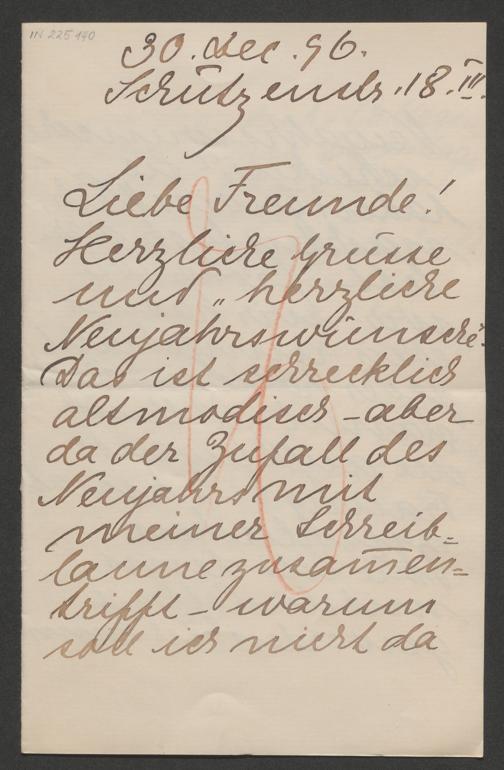 IN 225 140
30. Dec. 96.
Schützenstr. 18. III.
Liebe Freunde!
Herzliche Grüsse
und „herzliche
Neujahrswünsche“.
Das ist schrecklich
altmodisch – aber
da der Zufall des
Neujahrs mit
meiner Schreib=
laune zusam̄en=
trifft – warum
soll ich nicht da